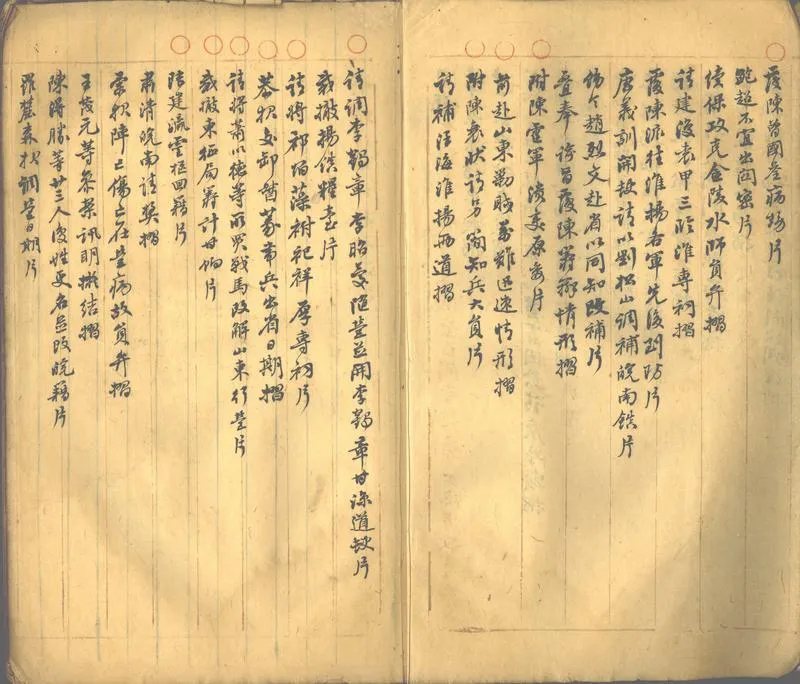 覆陳曾國荃病狀片
鮑超不宜出関密片
續保攻克金陵水師員弁摺
請建復袁甲三臨淮專祠摺
覆陳派往淮揚各軍先後到防片
唐義訓開缺請以劉松山調補皖南鎮片
候令趙烈文赴省以同知改補片
疊奉諭旨覆陳籌辦情形摺
附陳霆軍譁變原委片
前赴山東勦賊萬難迅速情形摺
附陳衰狀請另簡知兵大員片
請補汪海淮揚兩道摺
請調李鶴章李昭慶隨營並開李鶴章甘涼道缺片
裁撤揚鎮糧臺片
請將祁宿藻祔祀祥厚專祠片
恭報交卸督篆帶兵出省日期摺
請將蕭以德等所買戰馬改解山東行營片
裁撤東征局籌計甘餉片
陸建瀛靈柩回籍片
肅清皖南請獎摺
彙報陣亡傷亡在營病故員弁摺
王茂元等參案訊明擬結摺
陳得勝等廿三人復姓更名並改皖籍片
羅麓森扎調營日期片